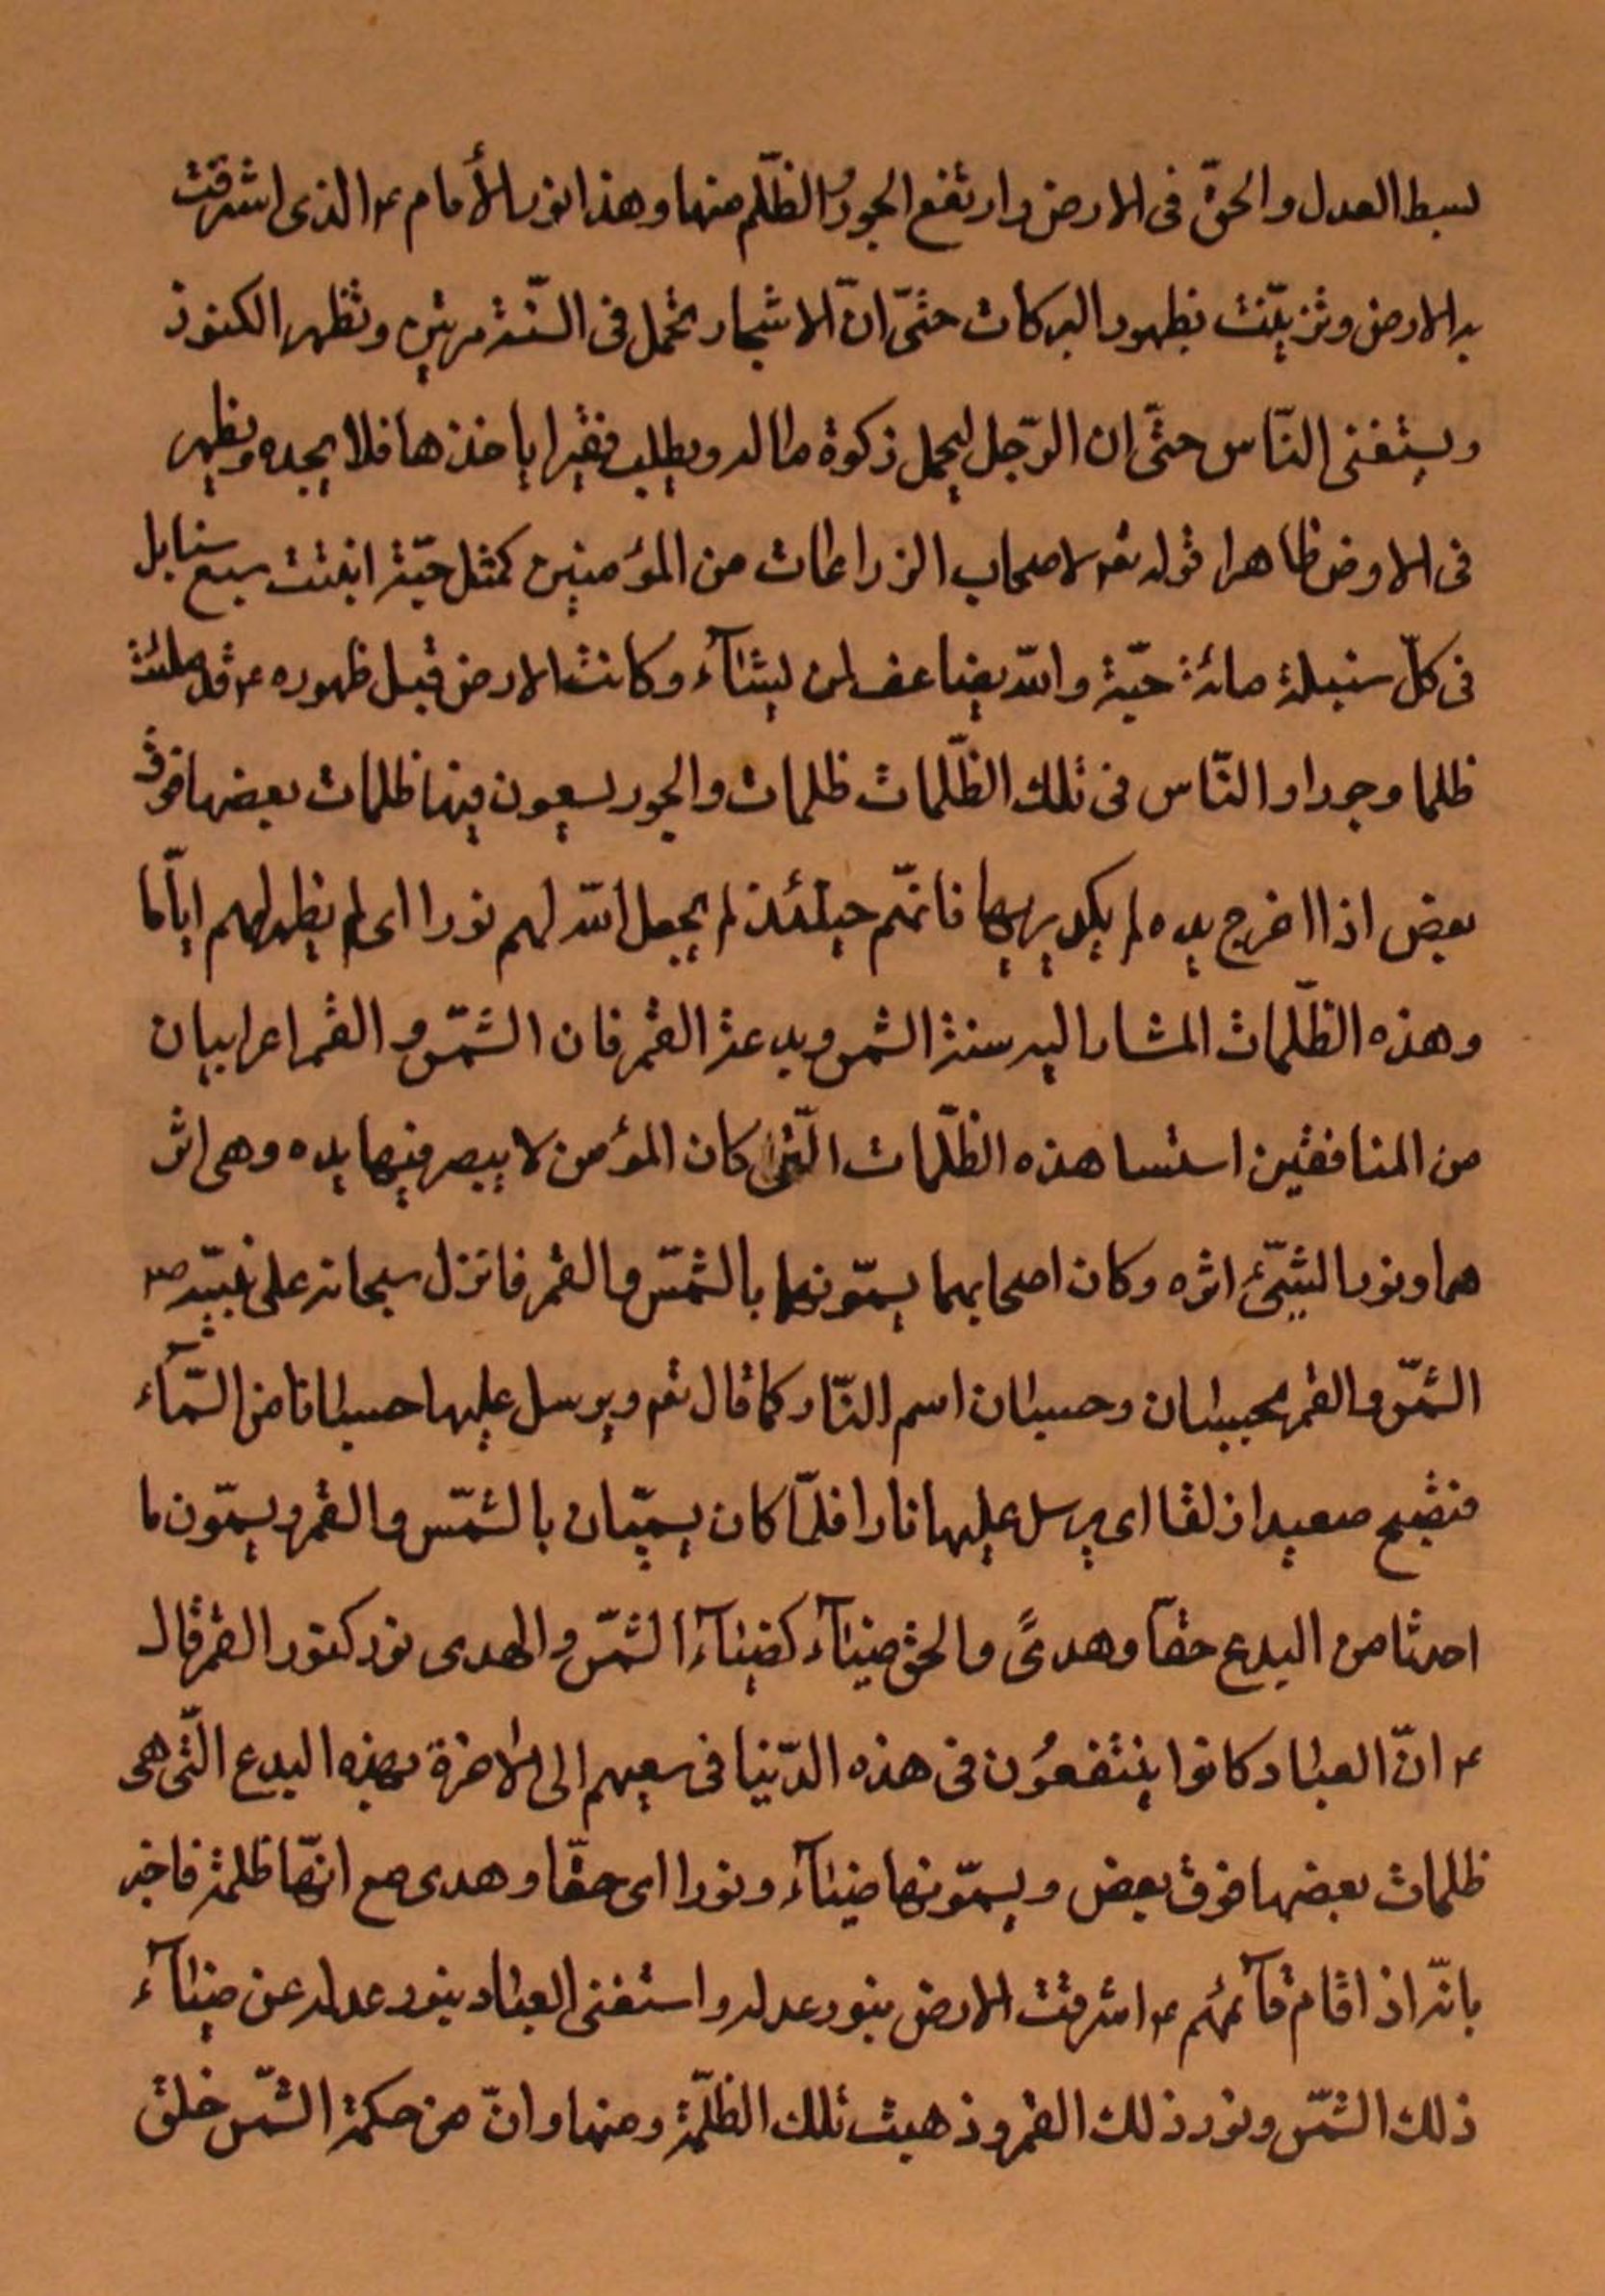 بسط العدل والحقّ فى الارض وارتفع الجور والظّلم منها وهذا نور الأمام ع الذى اشرقت
به الارض وتزيّنت بظهور البركات حتّى انّ الاشجار تحمل فى السّنة مرتين وتظهر الكنوز
ويستغنى النّاس حتّى ان الرّجل ليحمل زكوة ماله ويطلب فقيرا ياخذها فلا يجده ويظهر
فى الارض ظاهرا قوله تعم لاصحاب الزراعات من المؤمنين كمثل حبّة انبتت سبع سنابل
فى كلّ سنبلة مائة حبّة والله يضاعف لمن يشآء وكانت الارض قبل ظهوره ع قد ملئت
ظلما وجورا والنّاس فى تلك الظّلمات ظلمات والجور يسعون فيها ظلمات بعضها فوق
بعض اذا اخرج يده لم يكد يريها فانهّم حينئذ لم يجعل الله لهم نورا اى لم يظهر لهم اياّما
وهذه الظّلمات المشار اليه سنة الشمس وبدعة القمر فان الشمّس والقمر اعرابيان
من المنافقين استسا هذه الظّلمات الّتى كان المؤمن لا يبصر فيها يده وهى اثر
هما ونور الشّئ اثره وكان اصحابهما يسمّونهما بالشمّس والقمر فانزل سبحانه على نبيّه ص
الشمّس والقمر بحسبان وحسبان اسم النّار كما قال تعم ويرسل عليها حسبانا من السّمآء
فتصبح صعيدا زلقا اى يرسل عليها نارا فلمّا كان يسمّيان بالشمّس والقمر ويسمّون ما
احدثا من البدع حقّا وهدىً والحق ضيآء كضيآء الشمّس والهدى نور كنور القمر قال
ع انّ العباد كانوا ينتفعُون فى هذه الدّنيا فى سعيهم الى الاخرة بهذه البدع الّتى هى
ظلمات بعضها فوق بعض ويسمّونها ضيآء ونورا اى حقّا وهدى مع انهّا ظلمة فاخبر
بانّه اذا قام قآئمهم ع اشرقت الارض بنور عدله واستغنى العباد بنور عدله عن ضيآء
ذلك الشمّس ونور ذلك القمر وذهبت تلك الظّلمة ومنها وانّ من حكمة الشمّس خلق